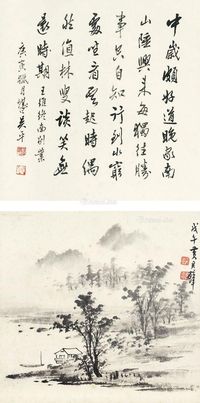 中歲頗好道晚家南
山陲興來每獨往勝
事只自知行到水窮
處坐看雲起時偶
然值林叟談笑無
還時期 王維終南別業
戊午黃君璧